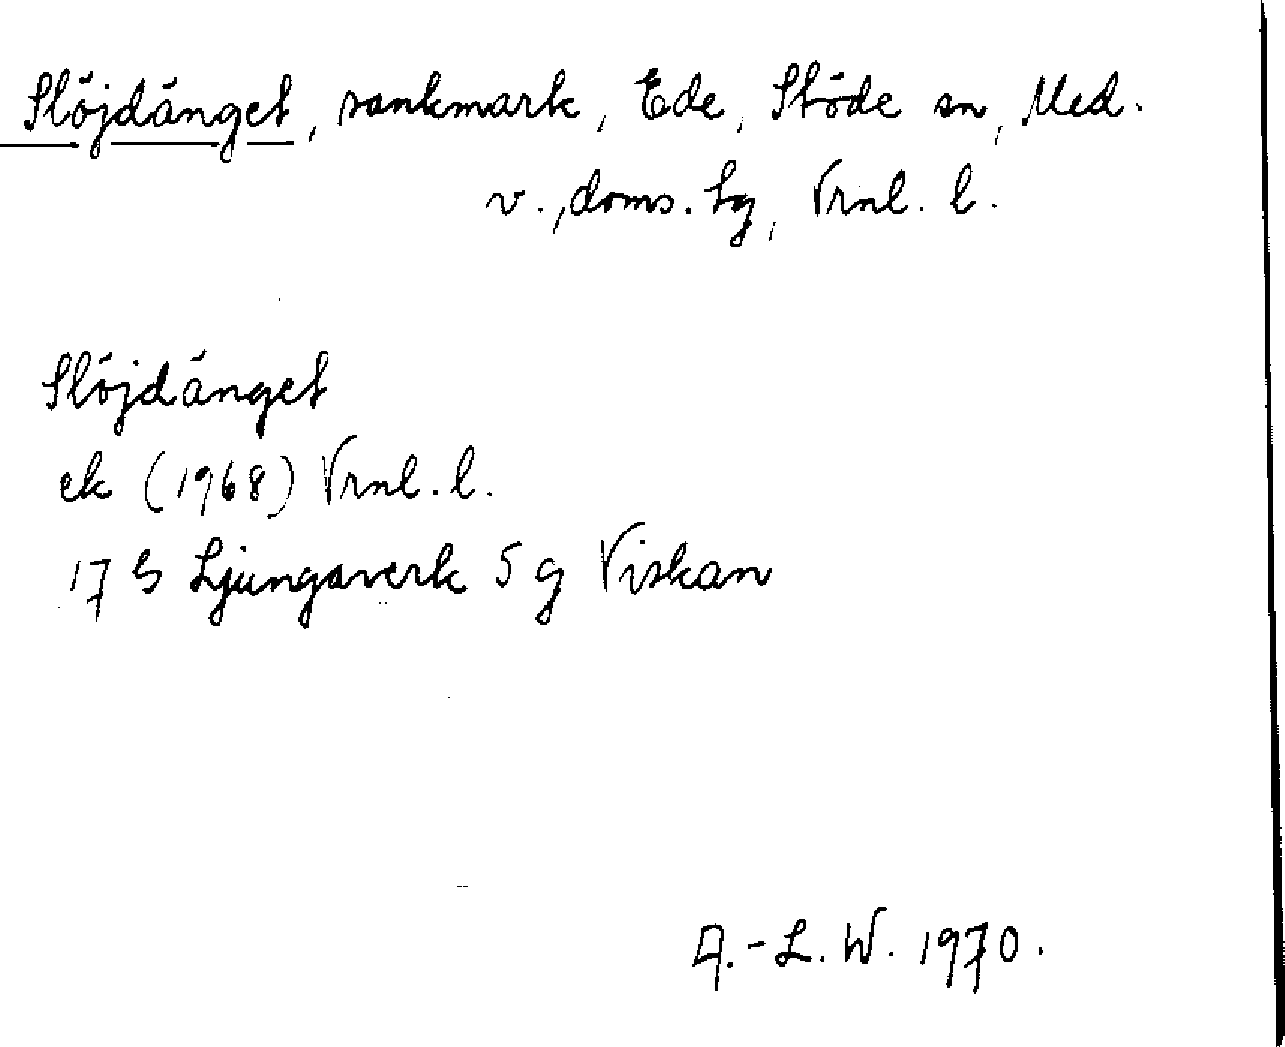 Slöjdänget, sankmark, Ede, Stöde sn, Med.
v., doms. hg, Vrnl. l.
Slöjdänget
ek (1968) Vrnl. l.
17 G Ljungaverk 5 g Viskan
A.-L. W. 1970.